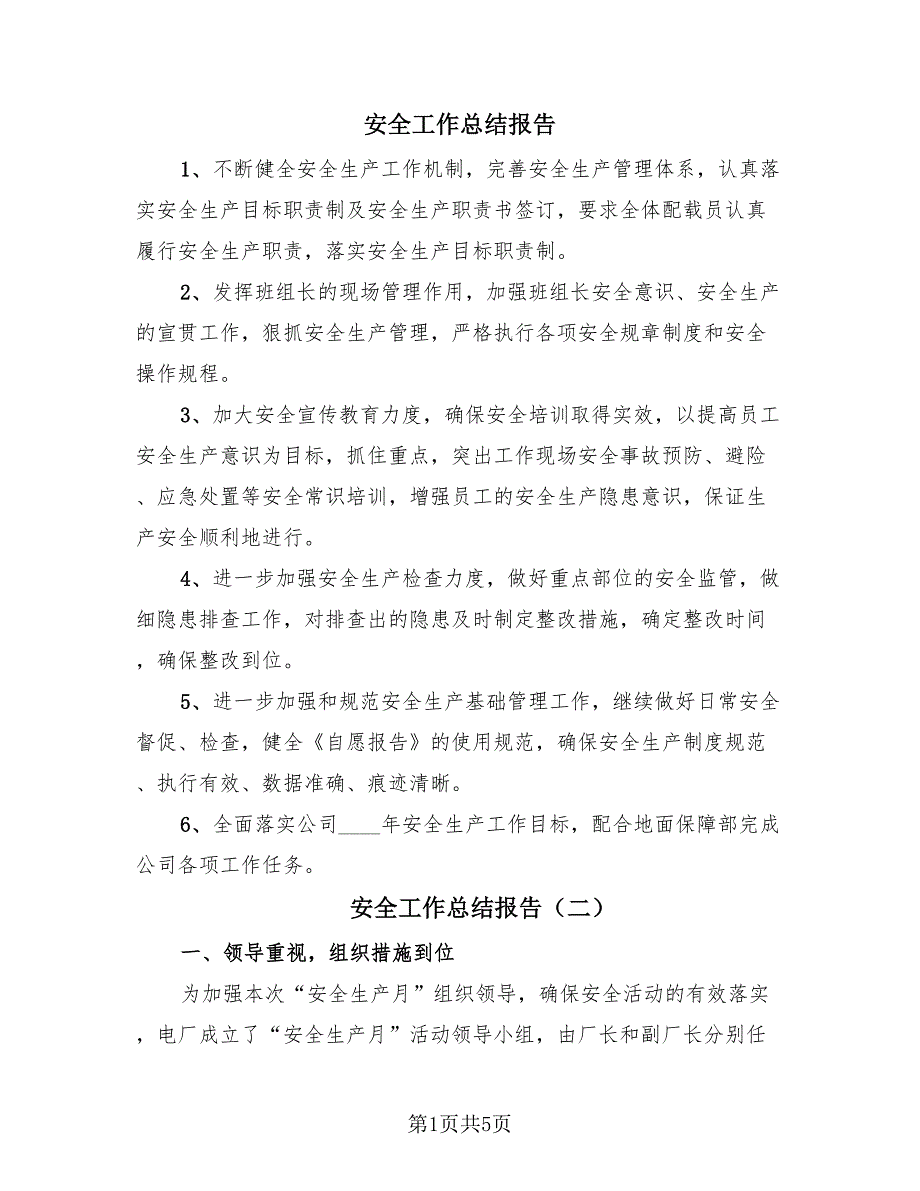 安全工作总结报告
1、不断健全安全生产工作机制，完善安全生产管理体系，认真落
实安全生产目标职责制及安全生产职责书签订，要求全体配载员认真
履行安全生产职责，落实安全生产目标职责制。
2、发挥班组长的现场管理作用，加强班组长安全意识、安全生产
的宣贯工作，狠抓安全生产管理，严格执行各项安全规章制度和安全
操作规程。
3、加大安全宣传教育力度，确保安全培训取得实效，以提高员工
安全生产意识为目标，抓住重点，突出工作现场安全事故预防、避险
、应急处置等安全常识培训，增强员工的安全生产隐患意识，保证生
产安全顺利地进行。
4、进一步加强安全生产检查力度，做好重点部位的安全监管，做
细隐患排查工作，对排查出的隐患及时制定整改措施，确定整改时间
，确保整改到位。
5、进一步加强和规范安全生产基础管理工作，继续做好日常安全
督促、检查，健全《自愿报告》的使用规范，确保安全生产制度规范
、执行有效、数据准确、痕迹清晰。
6、全面落实公司____年安全生产工作目标，配合地面保障部完成
公司各项工作任务。
安全工作总结报告（二）
一、领导重视，组织措施到位
为加强本次“安全生产月”组织领导，确保安全活动的有效落实
，电厂成立了“安全生产月”活动领导小组，由厂长和副厂长分别任
第1页共5页